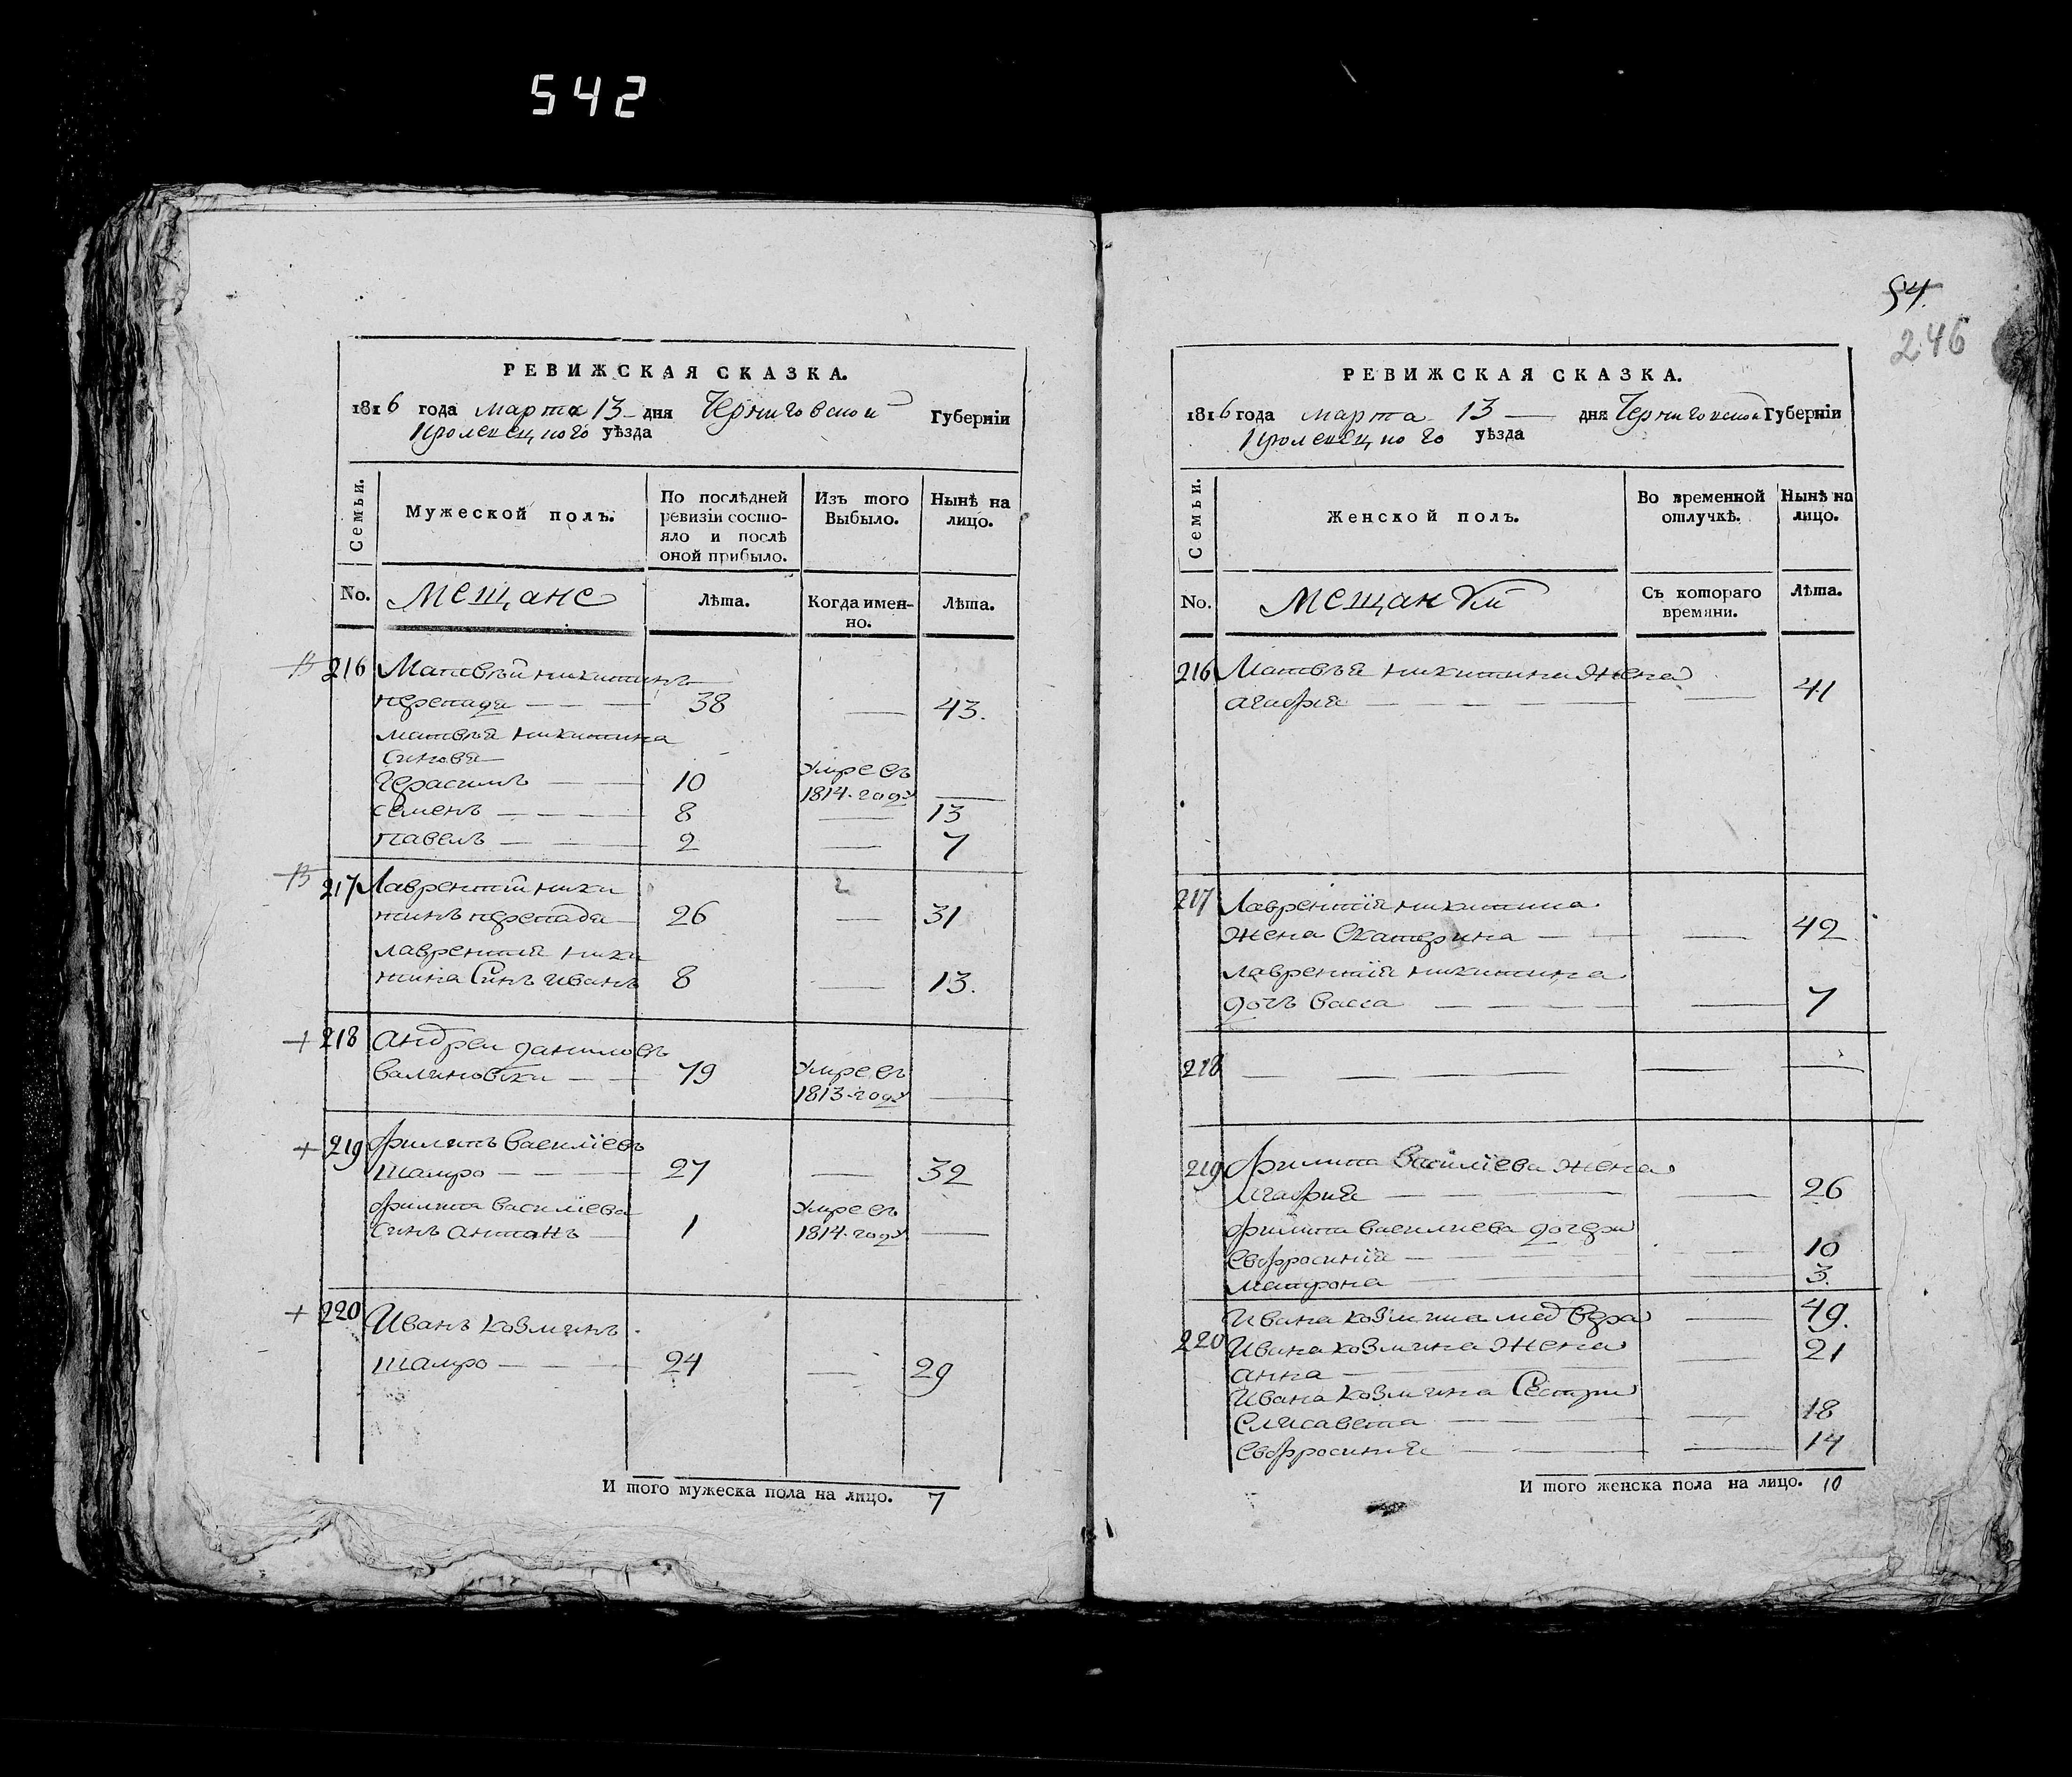 542
РЕВИЖСКАЯ СКАЗКА.
1816 года марта 13 дня Черниговской Губерніи
Кролевецкого уѣзда
Семьи.
Мужеской полъ.
По послѣдней ревизіи состояло и послѣ оной прибыло.
Изъ того Выбыло.
Нынѣ на лицо.
No.
Мещане
Лѣта.
Когда именно.
Лѣта.
216 Матвѣй никитинъ
перепада 38 — 43.
матвѣя никитина
синовя
Герасимъ 10 умре въ 1814. году —
семенъ 8 — 13
павелъ 2 — 7
217 Лаврентій ники
тинъ перепада 26 — 31
лаврентія ники
тина Синъ иванъ 8 — 13.
218 андреи даниловъ
79 умре въ
1813. году —
219 филипъ василіевъ
шапро 27 — 32
филипа василіева умре въ
синъ антонъ 1 1814. году —
220 Иванъ козминъ
шапро 24 — 29
И того мужеска пола на лицо. 7
54.
246
РЕВИЖСКАЯ СКАЗКА.
1816 года марта 13 дня Черниговской Губерніи
Кролевецкого уѣзда
Семьи.
Женской полъ.
Во временной отлучкѣ.
Нынѣ на лицо.
No.
Мещанки
Съ котораго времяни.
Лѣта.
216 Матвѣя никитина жена
агафия — 41
217 Лаврентія никитина
жена Екатерина — 42
лаврентія никитина
дочъ васса — 7
218 — — —
219 филипа Василіева жена
агафия — 26
филипа василиева дочери
Евфросинія — 10
матрона — 3.
Ивана козмина — 49.
220 Ивана козмина жена 21
анна —
Ивана козмина Сестри
Елисавета — 18
Евфросиния — 14
И того женска пола на лицо. 10